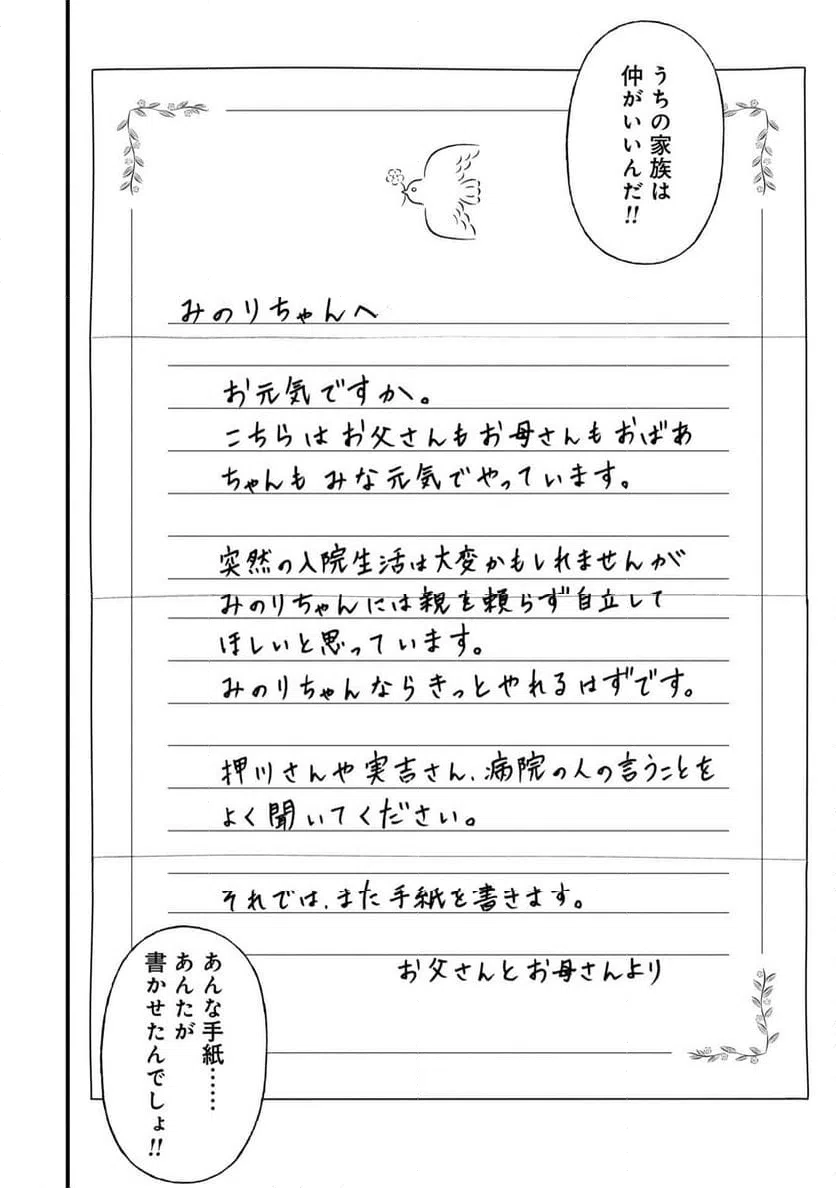 うちの家族は
仲がいいんだ!!
みのりちゃんへ
お元気ですか。
こちらはお父さんもお母さんもおばあ
ちゃんも みな元気でやっています。
突然の入院生活は大変かもしれませんが
みのりちゃんには親を頼らず自立して
ほしいと思っています。
みのりちゃんならきっとやれるはずです。
押川さんや実吉さん、病院の人の言うことを
よく聞いてください。
それでは、また手紙を書きます。
お父さんとお母さんより
あんな手紙……
あんたが
書かせたんでしょ!!